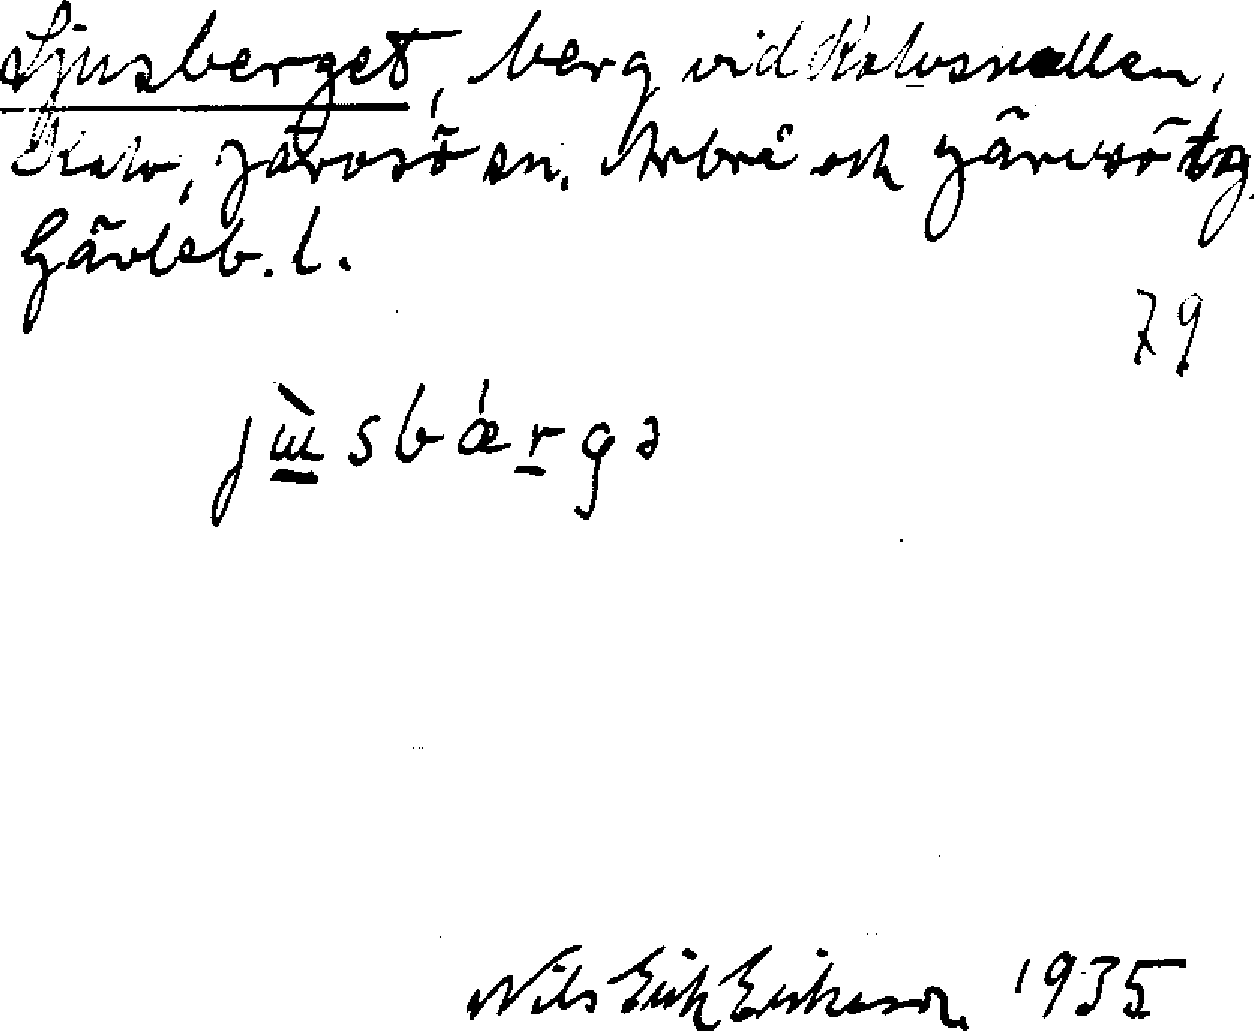 Ljusberget, berg vid Kalvsvallen,
Kalv, Järvsö sn. Arbrå och Järvsö tg
Gävleb. l.
79
jɯ̀sbǽrgə
Nils Erik Eriksson 1935